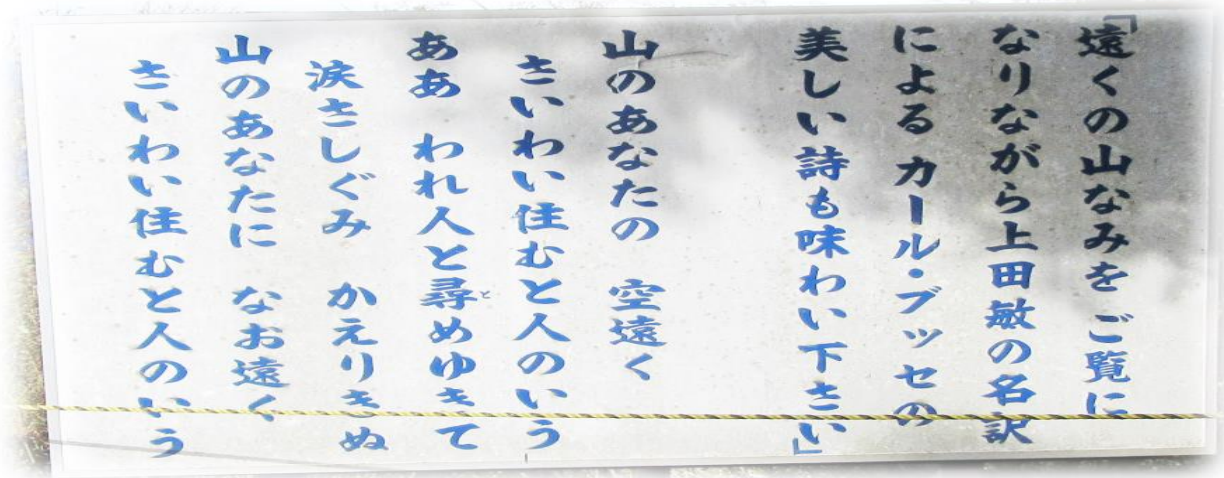 「遠くの山なみを ご覧に
なりながら上田敏の名訳
による カール・ブッセの
美しい詩も味わい下さい」
山のあなたの 空遠く
さいわい住むと人のいう
ああ われ人と尋めゆきて
と
涙さしぐみ かえりきぬ
山のあなたに なお遠く
さいわい住むと人のいう